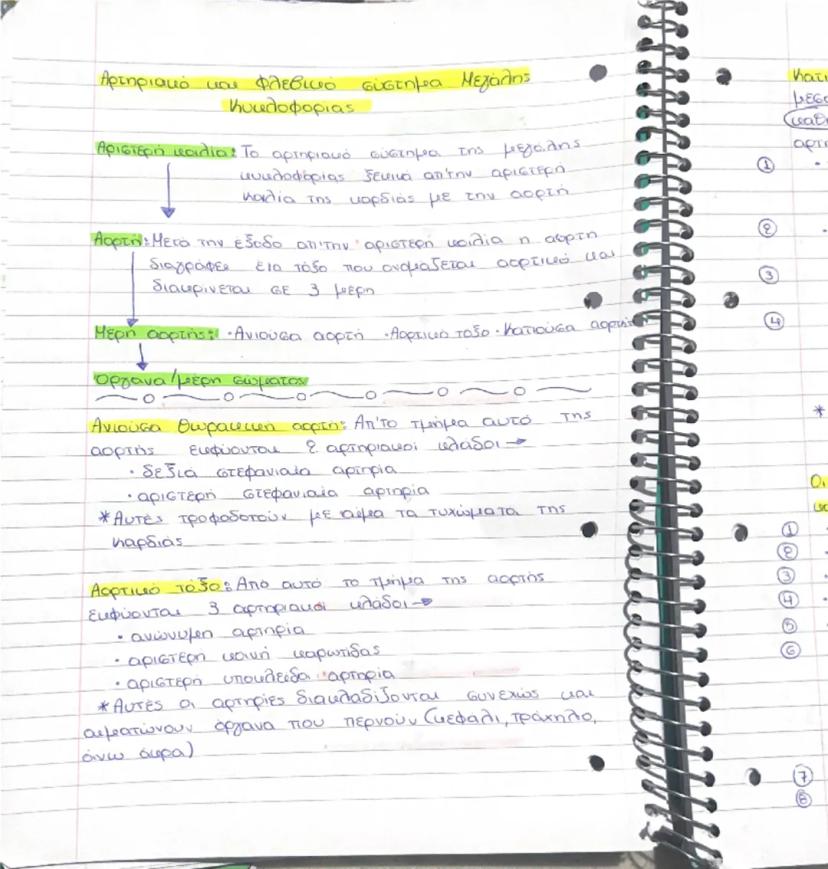 Αρτηριακό και Φλεβικό σύστημα Μεγάλης
Κυκλοφορίας
Αριστερή κοιλία: Το αρτηριακό σύστημα της μεγάλης
κυκλοφορίας ξεκινά απ'την αριστερή
κοιλία της καρδιάς με την αορτή
Αορτή: Μετά την έξοδο απ'την αριστερή κοιλία η αορτή
διαγράφει ένα τόξο που ονομάζεται αορτικό και
διακρίνεται σε 3 μέρη
Μέρη αορτής: · Ανιούσα αορτή · Αορτικό τόξο · Κατιούσα αορτή
Όργανα/μέρη σώματος
Ανιούσα Θωρακική αορτή: Απ'το τμήμα αυτό της
αορτής εκφύονται 2 αρτηριακοί κλάδοι →
· δεξιά στεφανιαία αρτηρία
· αριστερή στεφανιαία αρτηρία
* Αυτές τροφοδοτούν με αίμα τα τοιχώματα της
καρδιάς
Αορτικό τόξο: Από αυτό το τμήμα της αορτής
εκφύονται 3 αρτηριακοί κλάδοι →
· ανώνυμη αρτηρία
· αριστερή κοινή καρωτίδας
· αριστερή υποκλείδα αρτηρία
* Αυτές οι αρτηρίες διακλαδίζονται συνεχώς και
αιματώνουν όργανα που περνούν (κεφάλι, τράχηλο,
άνω άκρα)
①
②
③
④
*
Οι
①
②
③
④
⑤
⑥
⑦
⑧